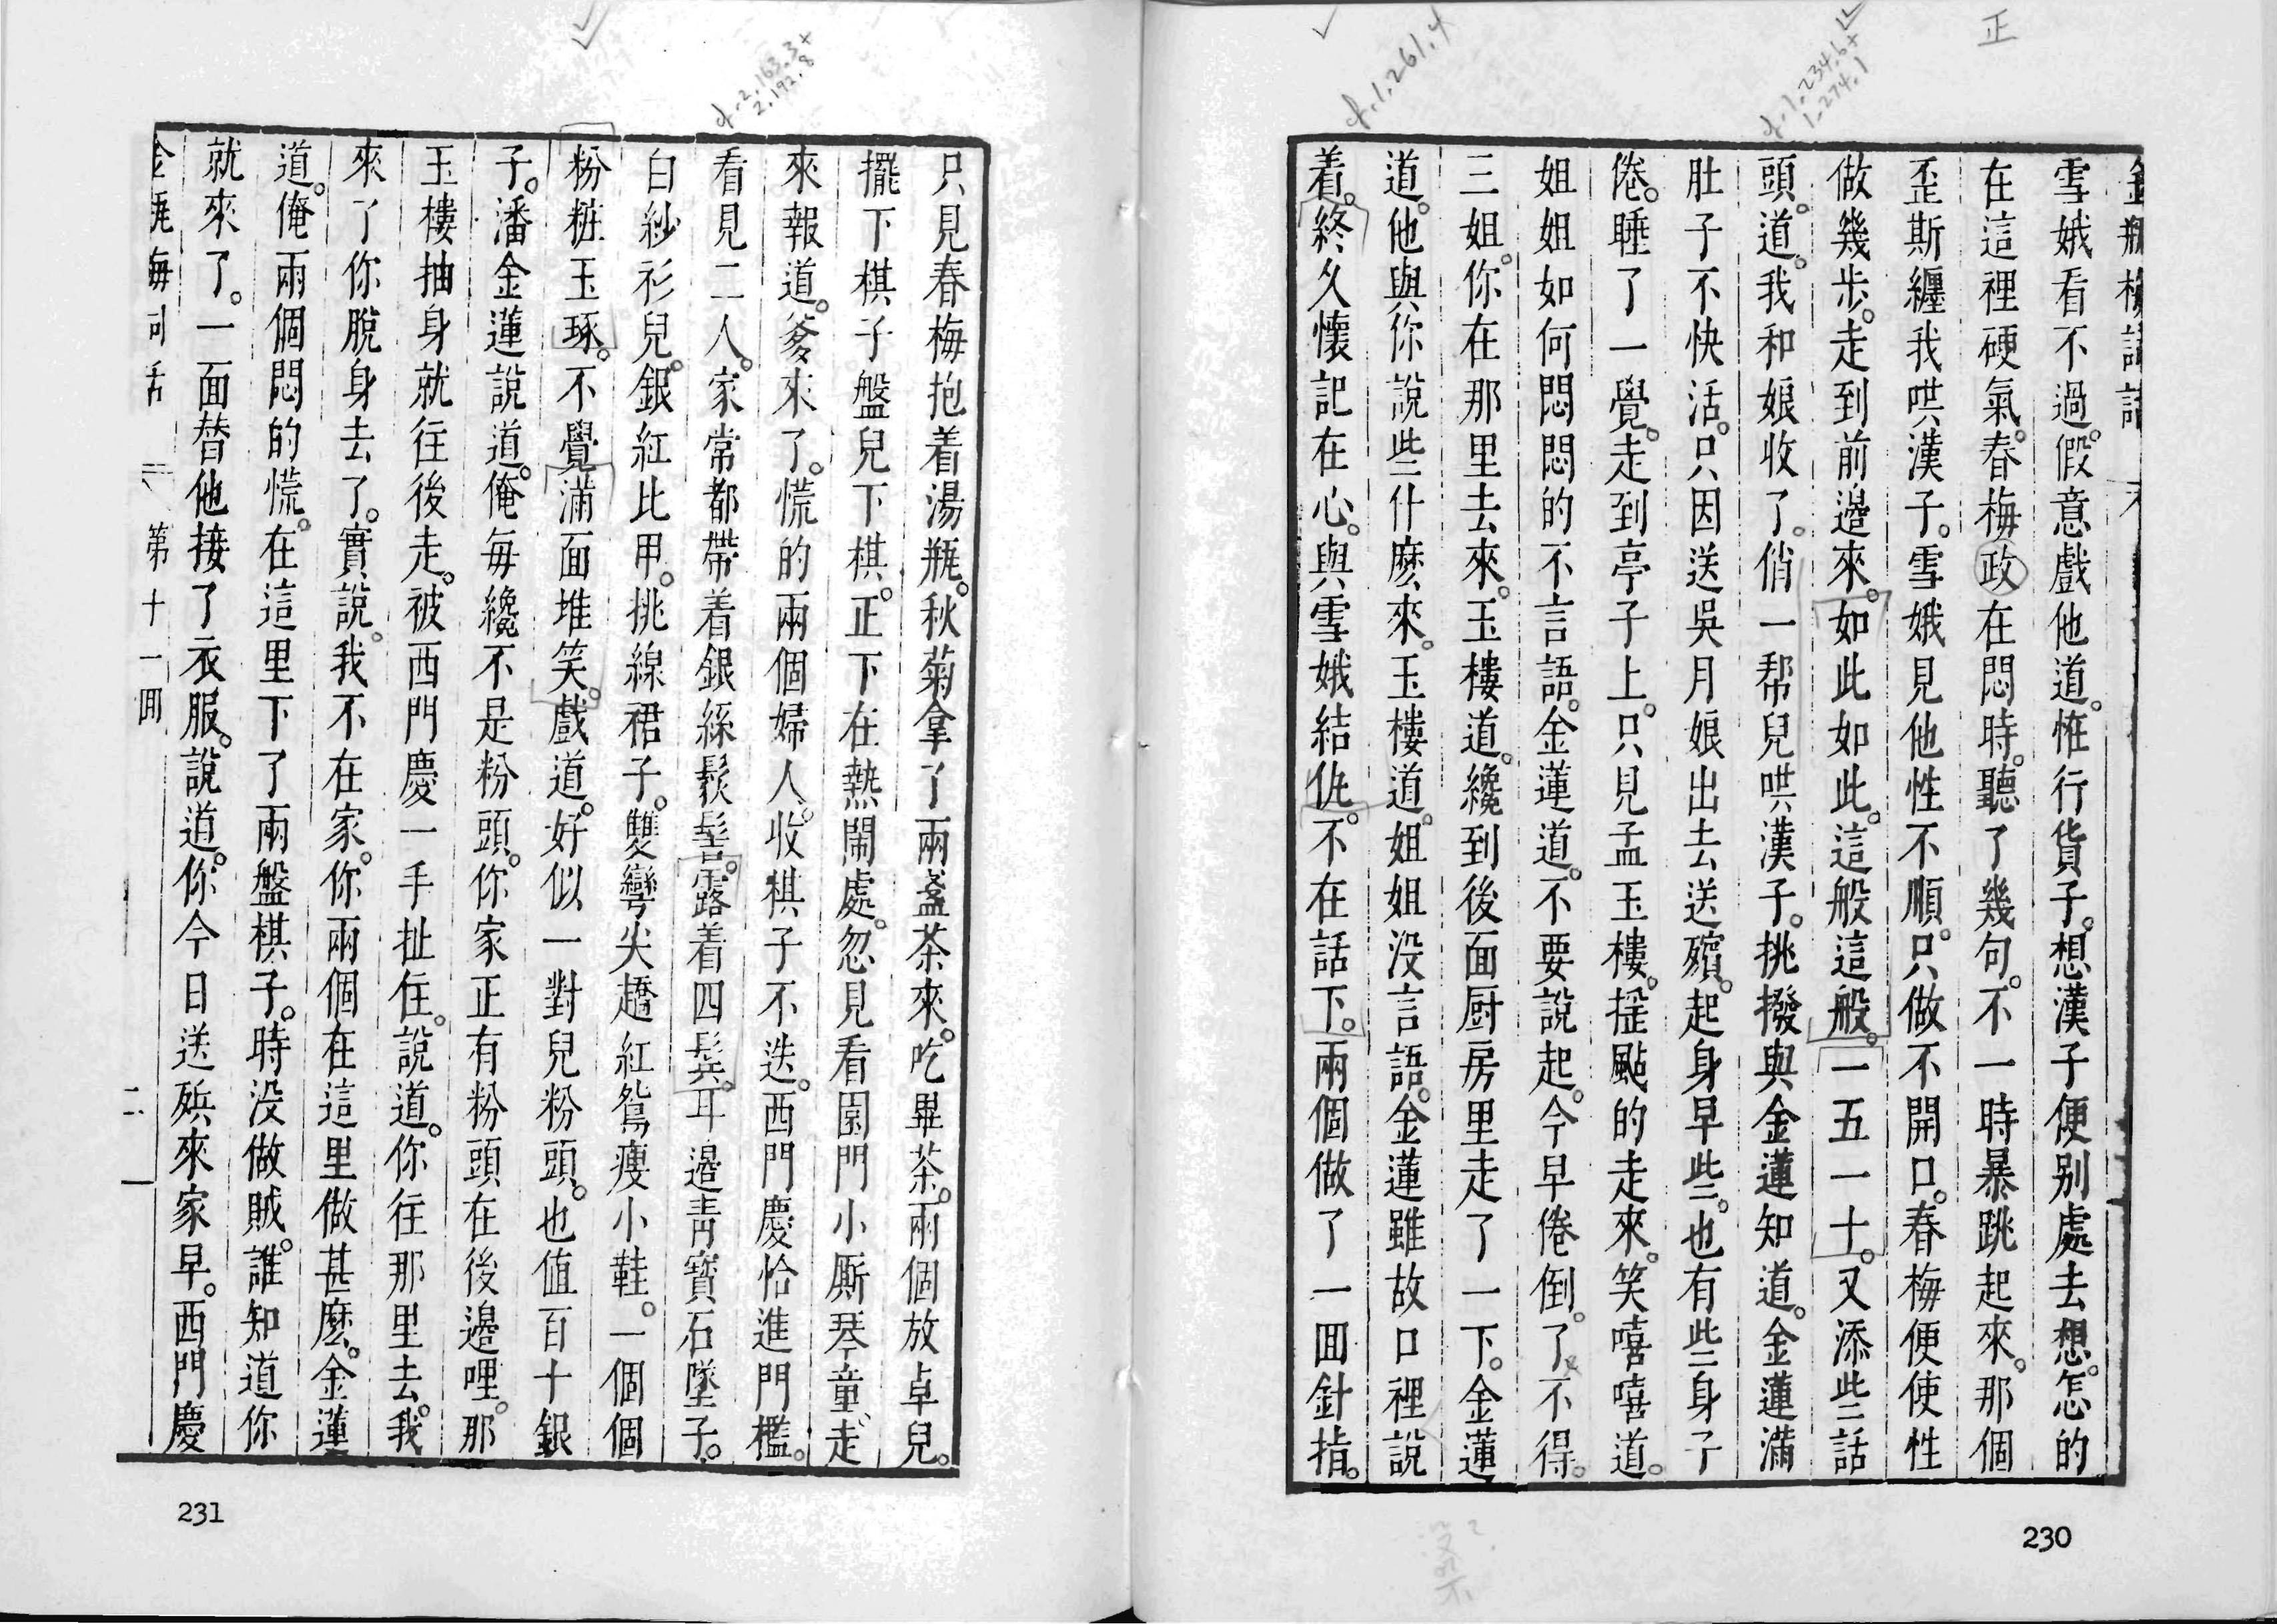 正
1.234.6+
1.274.1
cf.1.261.4
金瓶梅詞話
雪娥看不過。假意戲他道。恠行貨子。想漢子便別處去想。怎的
在這裡硬氣。春梅政在悶時。聽了幾句。不一時暴跳起來。那個
歪斯纏我哄漢子。雪娥見他性不順。只做不開口。春梅便使性
做幾步。走到前邊來。如此如此。這般這般。一五一十。又添些話
頭。道。我和娘收了。俏一帮兒哄漢子。挑撥與金蓮知道。金蓮滿
肚子不快活。只因送吳月娘出去送殯。起身早些。也有些身子
倦。睡了一覺。走到亭子上。只見孟玉樓。搖颭的走來。笑嘻嘻道。
姐姐如何悶悶的不言語。金蓮道。不要說起。今早倦倒。了不得。
三姐。你在那里去來。玉樓道。纔到後面厨房里走了一下。金蓮
道。他與你說些什麽來。玉樓道。姐姐没言語。金蓮雖故口裡說
着。終久懷記在心。與雪娥結仇。不在話下。兩個做了一回針指。
230
cf.2.163.3+
2.192.8
只見春梅抱着湯瓶。秋菊拿了兩盞茶來。吃畢茶。兩個放卓兒。
擺下棋子盤兒下棋。正下在熱鬧處。忽見看園門小厮琴童走
來報道。爹來了。慌的兩個婦人。收棋子不迭。西門慶恰進門檻。
看見二人。家常都帶着銀絲䯼髻。露着四鬂。耳邊青寶石墜子。
白紗衫兒。銀紅比甲。挑線裙子。雙彎尖趫紅鴛瘦小鞋。一個個
粉粧玉琢。不覺滿面堆笑。戲道。好似一對兒粉頭。也值百十銀
子。潘金蓮說道。俺每纔不是粉頭。你家正有粉頭在後邊哩。那
玉樓抽身就往後走。被西門慶一手扯住。說道。你往那里去。我
來了你脫身去了。實說。我不在家。你兩個在這里做甚麽。金蓮
道。俺兩個悶的慌。在這里下了兩盤棋子。時没做賊。誰知道你
就來了。一面替他接了衣服。說道。你今日送殯來家早。西門慶
金瓶梅詞話 第十一囬 二
231